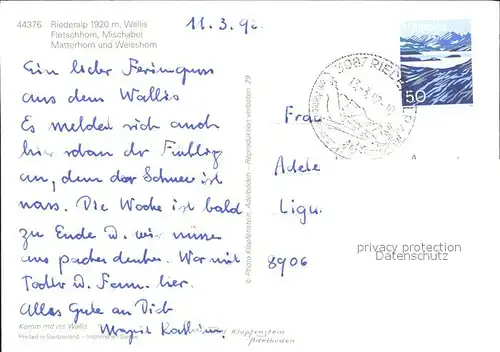 44376 Riederalp 1920 m, Wallis
Fletschhorn, Mischabel
Matterhorn und Weisshorn
11.3.92
Ein lieber Feriengruss
aus dem Wallis
Es melden sich auch
hier schon der Frühling
an, denn der Schnee ist
nass. Die Woche ist bald
zu Ende u. wir müssen
ans packen denken. War mit
Tochter u. Fam. hier.
Alles Gute an Dich
Komm mit ins Wallis
Printed in Switzerland - Imprimé en Suisse
© Photo Klopfenstein, Adelboden - Reproduktion verboten 29
Klopfenstein
Adelboden
3987 RIEDERALP
50
Frau
Adele
8906
privacy protection
Datenschutz